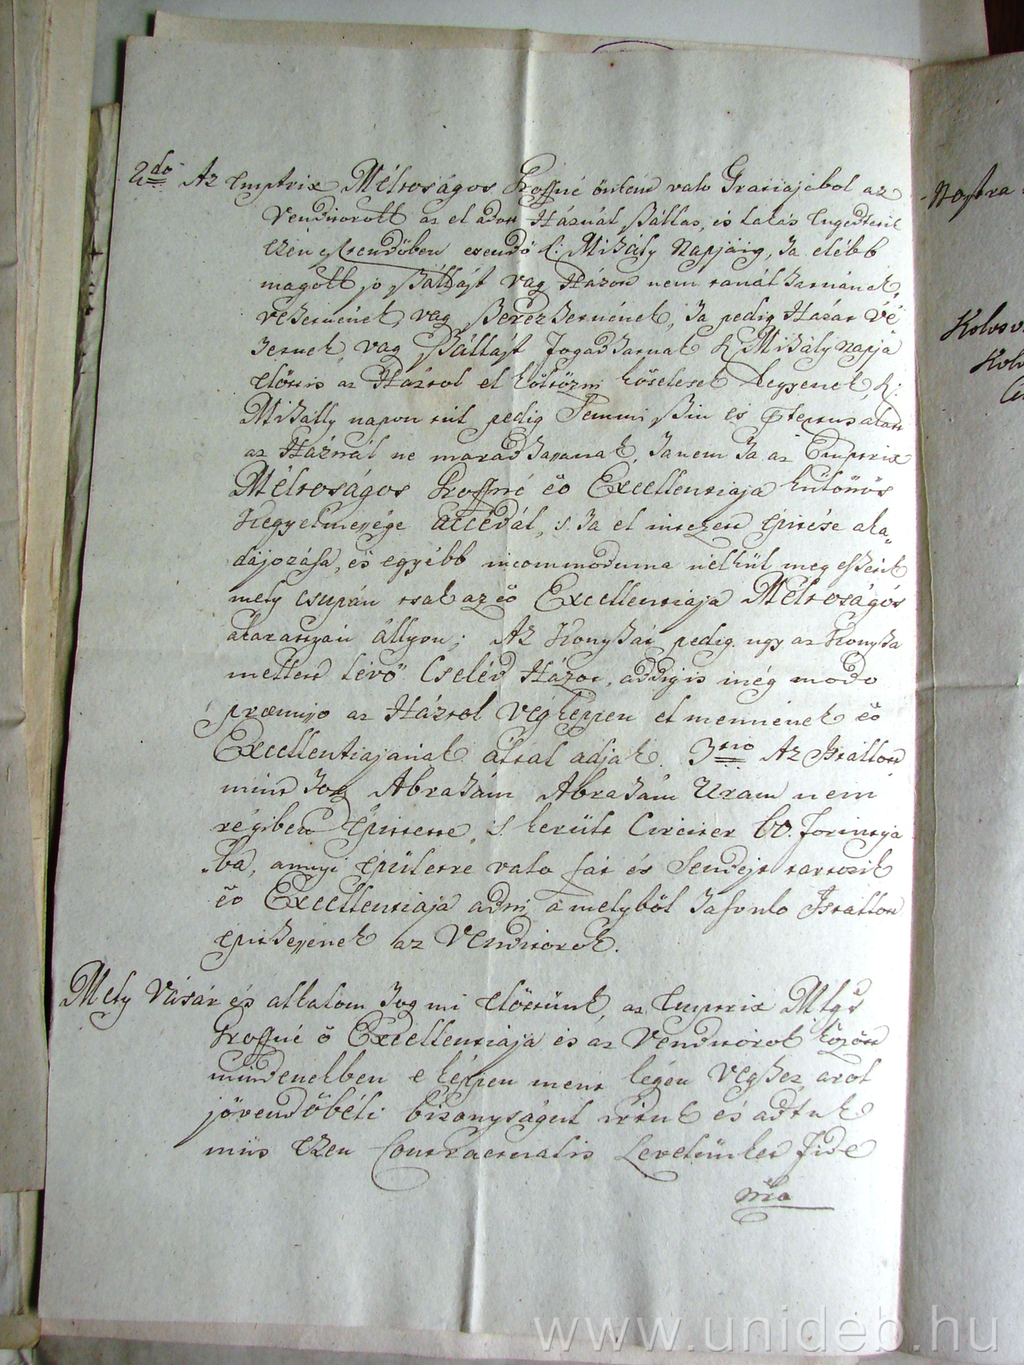 2do Az Emptrix Méltoságos Groffné önként valo Gratiajábol az
Venditorott az el adott Háznál szállás, és lakás Engedtetik
Ezen Esztendőben esendő S: Mihály Napjáig, ha elébb
magott jo szállást vag Házott nem tanálhatnának,
vehetnének, vag szerezhetnének, ha pedig Házat vé
hetnek, vag szállást fogadhatnak S. Mihály napja
Előtt is az Háztol el költözni kötelesek légyenek, S:
Mihálly napon tul pedig Semmi szin és Praetextus alatt
az Háznál ne maradhassanak, hanem ha az Emptrix
Méltoságos Groffné eö Excellentiaja külömös
Kegyelmessége accedál, s ha el intézett épitése aka„
dájozása, és egyébb incommoduma nélkül meg esketik
mely csupán csak az eö Excellentiaja Méltoságos
akarattyán állyon; Az Konyhát pedig ugy az Konyha
mellett lévő Cseléd Házat, addig is még modo
praemisso az Háztol végképpen el mennének eö
Excellentiajanak által adják. 3tio Az Istallott
mint hogy Abrahám Abrahám Uram nem
régiben Épittette, s került Circiter 60. forintja
ba, annyi épületre valo fát és Sendejt tartozik
eö Excellentiaja adni a melyböl hasonlo Istallott
épithessenek az Venditorok.
Mely Vásár és alkalom hog mi Előttünk, az Emptrix Mlgs
Groffné ö Excellentiaja és az Venditorok között
mindenekben e képpen ment legen véghez, arol
jövendőbéli bizonyságul irtuk és adtuk
mü is Ezen Contractualis Levelünket fide
nra
Nostra
Kolosv
Kolo
www.unideb.hu